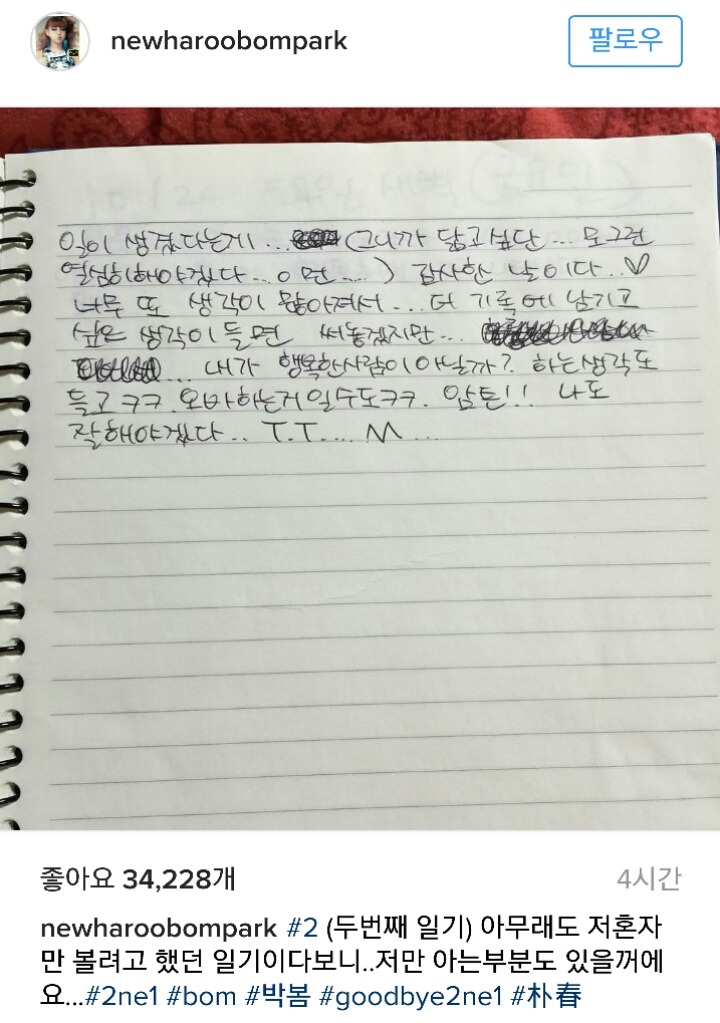 newharoobompark
팔로우
일이 생겼다는게... (그니까 닮고싶단... 모그런
열심히해야겠다..ㅇ 면....) 감사한 날이다..♡
너무 또 생각이 많아져서... 더 기록에 남기고
싶은 생각이 들면 써놓겠지만...
... 내가 행복한사람이아닐까? 하는생각도
들고ㅋㅋ. 오바하는거일수도ㅋㅋ. 암튼!! 나도
잘해야겠다.. T.T....
좋아요 34,228개
4시간
newharoobompark #2 (두번째 일기) 아무래도 저혼자
만 볼려고 했던 일기이다보니..저만 아는부분도 있을꺼에
요...#2ne1 #bom #박봄 #goodbye2ne1 #朴春